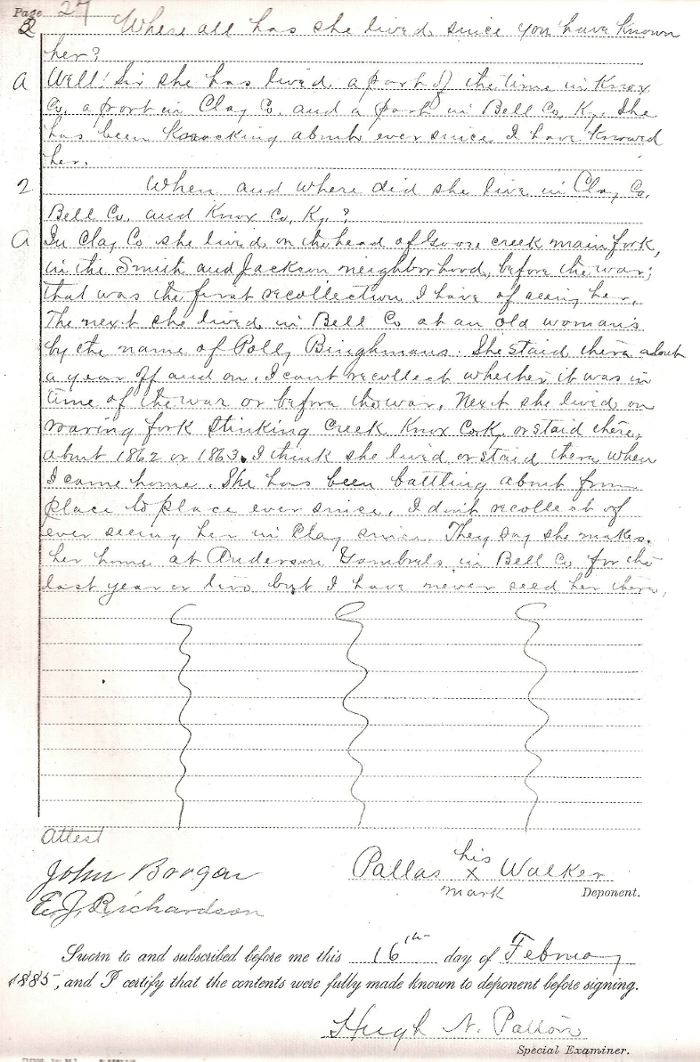 Page 27
Q Where all has she lived since you have known
her?
A Well! Sir she has lived a part of the time in Knox
Co. a part in Clay Co. and a part in Bell Co. Ky. She
has been knocking about ever since I have knowed
her.
2 When and where did she live in Clay Co.
Bell Co. and Knox Co. Ky.?
A In Clay Co she lived on the head of Goose creek main fork,
in the Smith and Jackson neighborhood, before the war;
that was the first recollection I have of seeing her.
The next she lived in Bell Co at an old woman's
by the name of Polly Binghmans. She staid there about
a year off and on. I cant recollect whether it was in
time of the war or before the war. Next she lived on
roaring fork Stinking Creek Knox Co Ky. or staid there,
about 1862 or 1863. I think she lived or staid there when
I came home. She has been battling about from
place to place ever since. I don't recollect of
ever seeing her in Clay since. They say she makes
her home at Anderson Gambrels in Bell Co for the
last year or two but I have never seed her there.
Attest
John Borgan
E. J. Richardson
Pallas his x mark Walker
Deponent.
Sworn to and subscribed before me this 16th day of February
1885, and I certify that the contents were fully made known to deponent before signing.
Hugh N. Patton
Special Examiner.